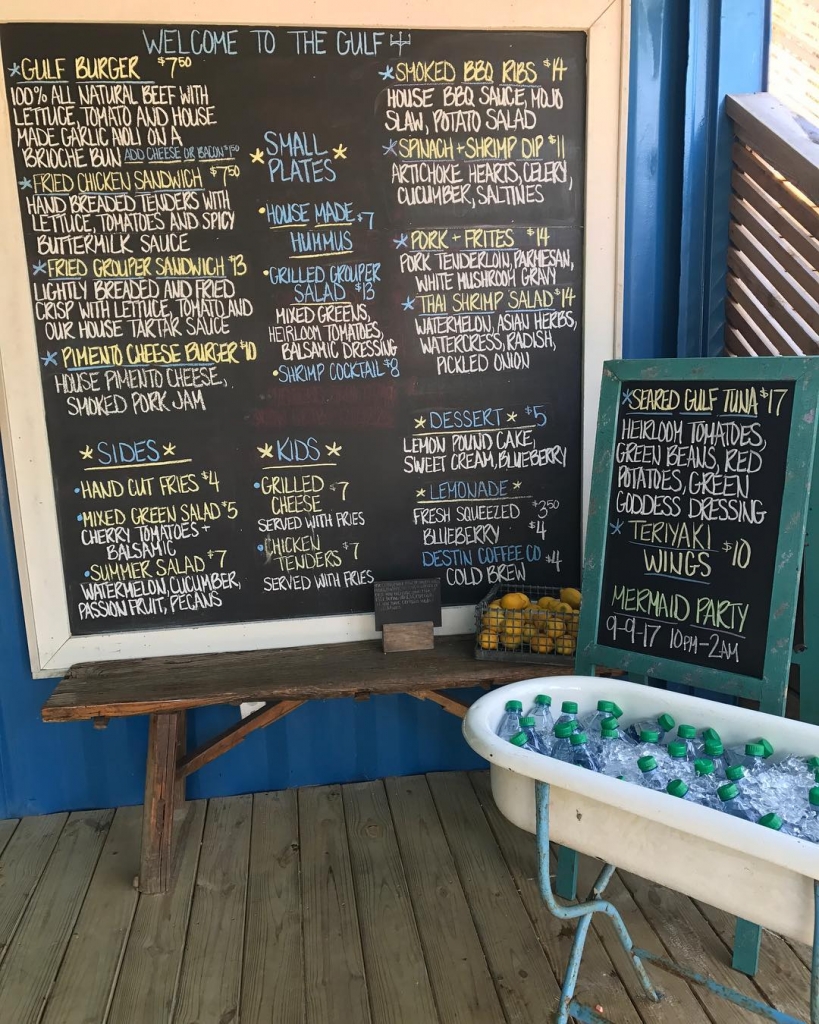 WELCOME TO THE GULF
*GULF BURGER $7.50
100% ALL NATURAL BEEF WITH
LETTUCE, TOMATO AND HOUSE
MADE GARLIC AIOLI ON A
BRIOCHE BUN ADD CHEESE OR BACON $1.50
*FRIED CHICKEN SANDWICH $7.50
HAND BREADED TENDERS WITH
LETTUCE, TOMATOES AND SPICY
BUTTERMILK SAUCE
*FRIED GROUPER SANDWICH $13
LIGHTLY BREADED AND FRIED
CRISP WITH LETTUCE, TOMATO AND
OUR HOUSE TARTAR SAUCE
*PIMENTO CHEESE BURGER $10
HOUSE PIMENTO CHEESE,
SMOKED PORK JAM
*SIDES*
•HAND CUT FRIES $4
•MIXED GREEN SALAD $5
CHERRY TOMATOES +
BALSAMIC
•SUMMER SALAD $7
WATERMELON, CUCUMBER,
PASSION FRUIT, PECANS
*SMALL
PLATES*
•HOUSE MADE $7
HUMMUS
•GRILLED GROUPER
SALAD $13
MIXED GREENS,
HEIRLOOM TOMATOES,
BALSAMIC DRESSING
•SHRIMP COCKTAIL $8
*KIDS*
•GRILLED
CHEESE $7
SERVED WITH FRIES
•CHICKEN
TENDERS $7
SERVED WITH FRIES
*SMOKED BBQ RIBS $14
HOUSE BBQ SAUCE, MOJO
SLAW, POTATO SALAD
*SPINACH + SHRIMP DIP $11
ARTICHOKE HEARTS, CELERY,
CUCUMBER, SALTINES
*PORK + FRITES $14
PORK TENDERLOIN, PARMESAN,
WHITE MUSHROOM GRAVY
*THAI SHRIMP SALAD $14
WATERMELON, ASIAN HERBS,
WATERCRESS, RADISH,
PICKLED ONION
*DESSERT* $5
LEMON POUND CAKE,
SWEET CREAM, BLUEBERRY
*LEMONADE*
FRESH SQUEEZED $3.50
BLUEBERRY $4
DESTIN COFFEE CO $4
COLD BREW
*SEARED GULF TUNA $17
HEIRLOOM TOMATOES,
GREEN BEANS, RED
POTATOES, GREEN
GODDESS DRESSING
*TERIYAKI
WINGS $10
MERMAID PARTY
9-9-17 10PM-2AM